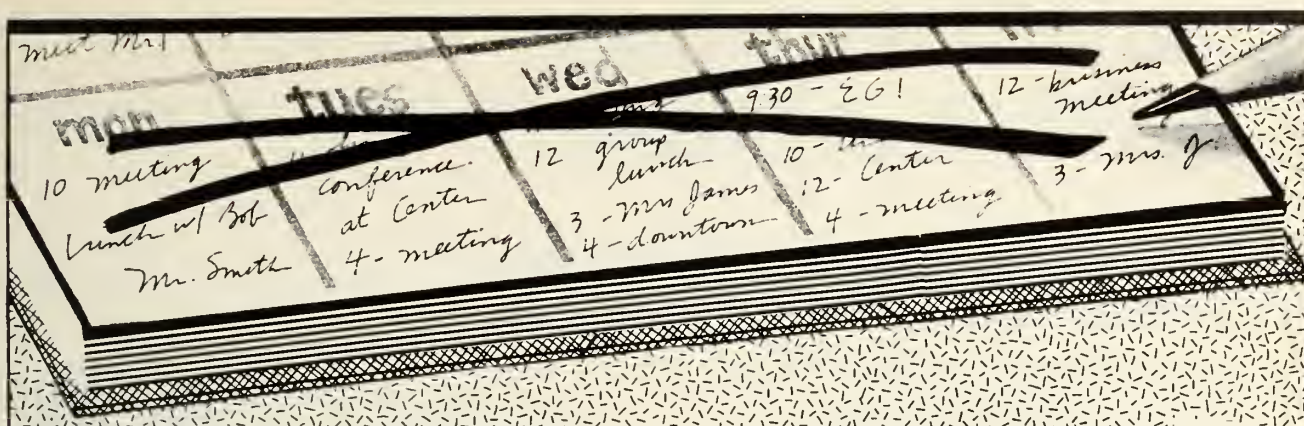 meet Mr.
mon
10 meeting
Lunch w/ Bob
Mr. Smith
tues
conference
at Center
4 - meeting
wed
12 group
lunch
3 - Mrs James
4 - downtown
thur
9:30 - EG!
10 -
12 - Center
4 - meeting
12 - business
meeting
3 - Mrs. J